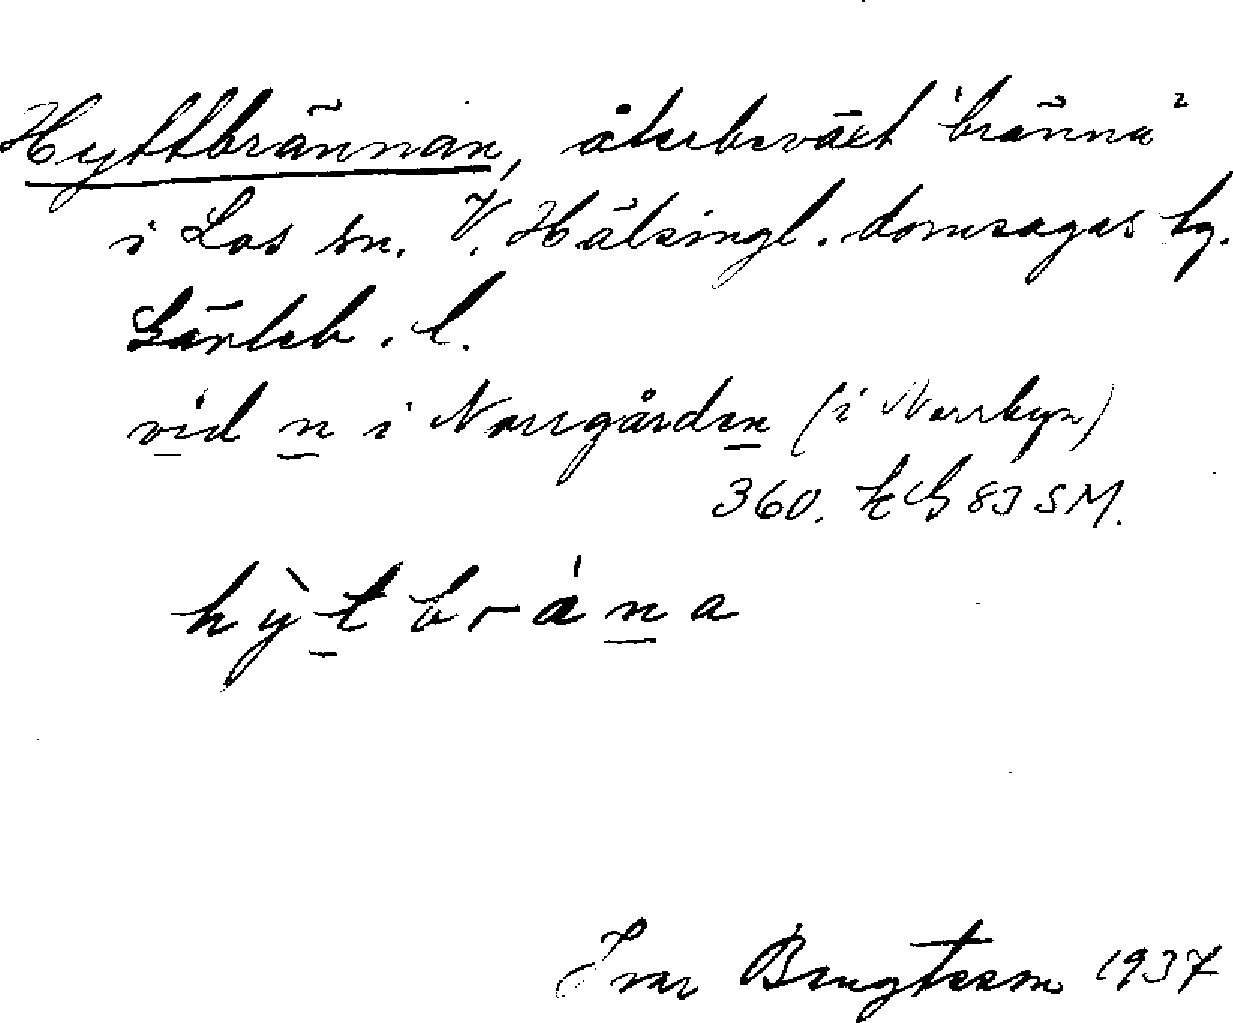 Hyttbrännan, återbeväxt "bränna"
i Los sn. V. Hälsingl. domsagas tg.
Gävleb. l.
vid n i Norrgården (i Norrbyn)
360. 83 SM.
hỳt brána
Ivar Bengtsson 1937